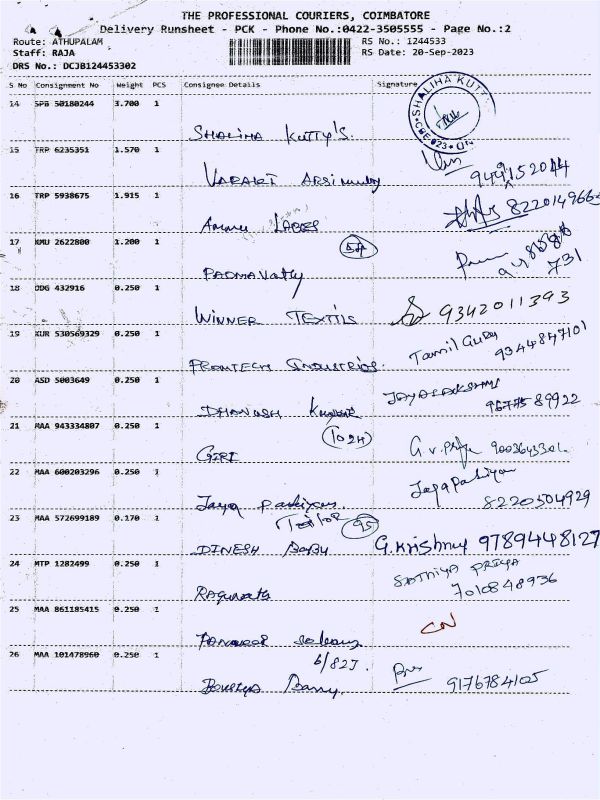 THE PROFESSIONAL COURIERS, COIMBATORE
Delivery Runsheet - PCK - Phone No.:0422-3505555 - Page No.:2
Route: ATHUPALAM RS No.: 1244533
Staff: RAJA RS Date: 20-Sep-2023
DRS No.: DCJB124453302
S No Consignment No Weight PCS Consignee Details Signature
14 SPB 50180244 3.700 1
SHALIHA KUTTY'S.
SHALIHA KUTTY
15 TRP 6235351 1.570 1
16 TRP 5938675 1.915 1
17 KMU 2622800 1.200 1
PADMAVathy
731
18 ODG 432916 0.250 1
WINNER TEXTILS 9342011393
19 KUR 530569329 0.250 1
Tamil Guru
9344847101
PROMTECH INDUSTRIES.
20 ASD 5003649 0.250 1
JAYALAKSHMI
DHANUSH
21 MAA 943334807 0.250 1
(102H)
GIRI
22 MAA 600203296 0.250 1
Jaya pandiyan
8220504929
Tailor (95)
23 MAA 572699189 0.170 1
DINESH BABU G.Krishnq 9789448127
24 MTP 1282499 0.250 1
SATHIYA PRIYA
7010848936
Ragunath
25 MAA 861185415 0.250 1
CN
6/827.
26 MAA 101478960 0.250 1
9176784105